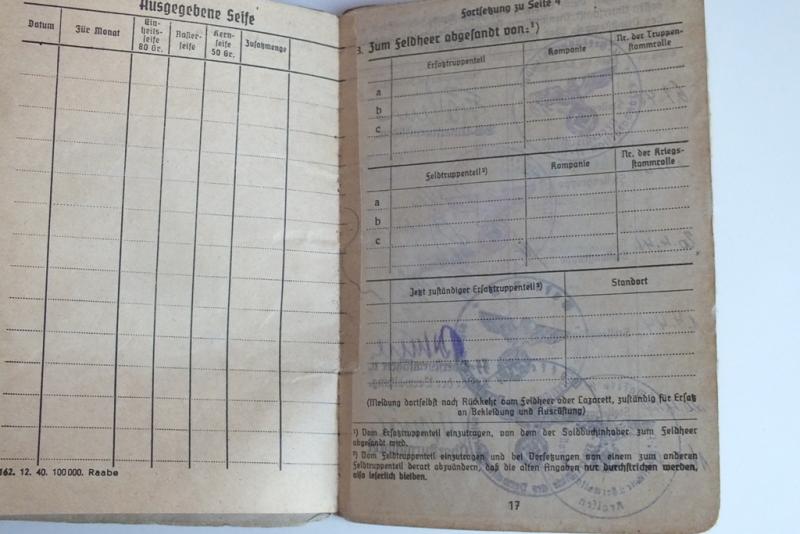 Ausgegebene Seife
Datum
Für Monat
Ein-
heits-
seife
80 Gr.
Rasier-
seife
Kern-
seife
50 Gr.
Zusatzmenge
162. 12. 40. 100 000. Raabe
Fortsetzung zu Seite 4
3. Zum Feldheer abgesandt von:¹)
Ersatztruppenteil
Kompanie
Nr. der Truppen-
stammrolle
a
b
c
Feldtruppenteil²)
Kompanie
Nr. der Kriegs-
stammrolle
a
b
c
Jetzt zuständiger Ersatztruppenteil²)
Standort
(Meldung dortselbst nach Rückkehr vom Feldheer oder Lazarett, zuständig für Ersatz
an Bekleidung und Ausrüstung)
¹) Vom Ersatztruppenteil einzutragen, von dem der Soldbuchinhaber zum Feldheer
abgesandt wird.
²) Vom Feldtruppenteil einzutragen und bei Versetzungen von einem zum anderen
Feldtruppenteil derart abzuändern, daß die alten Angaben nur durchstrichen werden,
also leserlich bleiben.
17